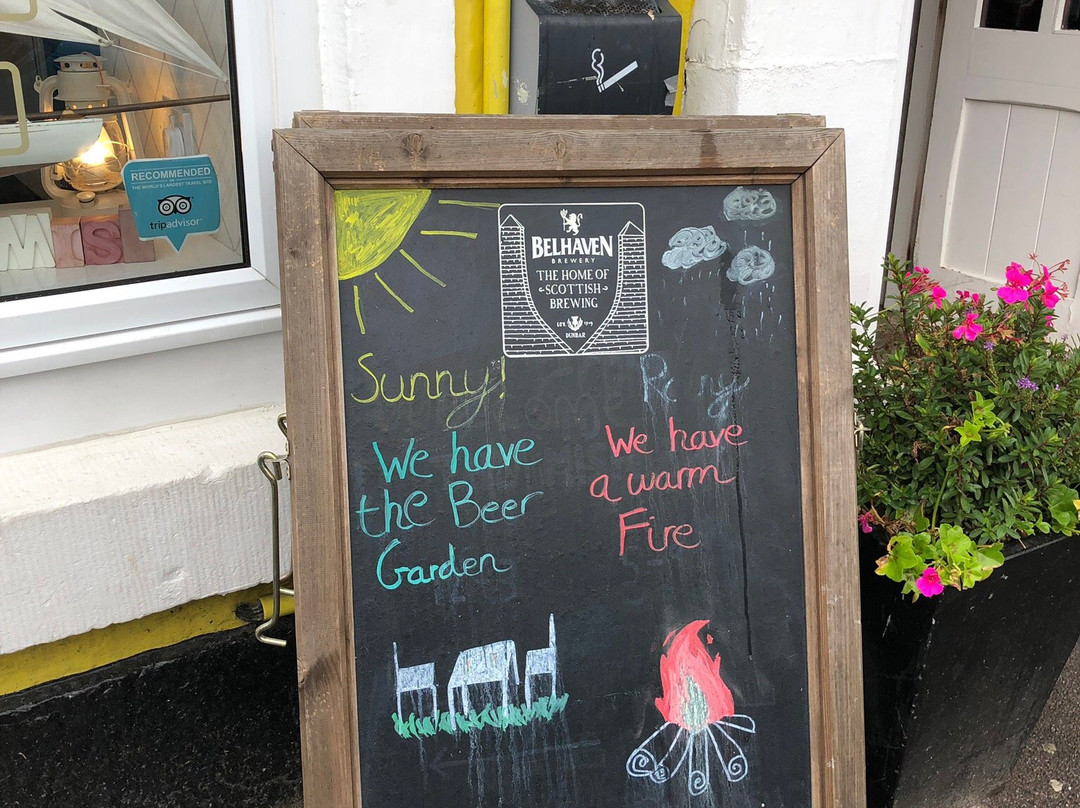 RECOMMENDED
ON
THE WORLD'S LARGEST TRAVEL SITE
tripadvisor
BELHAVEN
BREWERY
THE HOME OF
SCOTTISH
BREWING
DUNBAR
Sunny!
We have
the Beer
Garden
We have
a warm
Fire